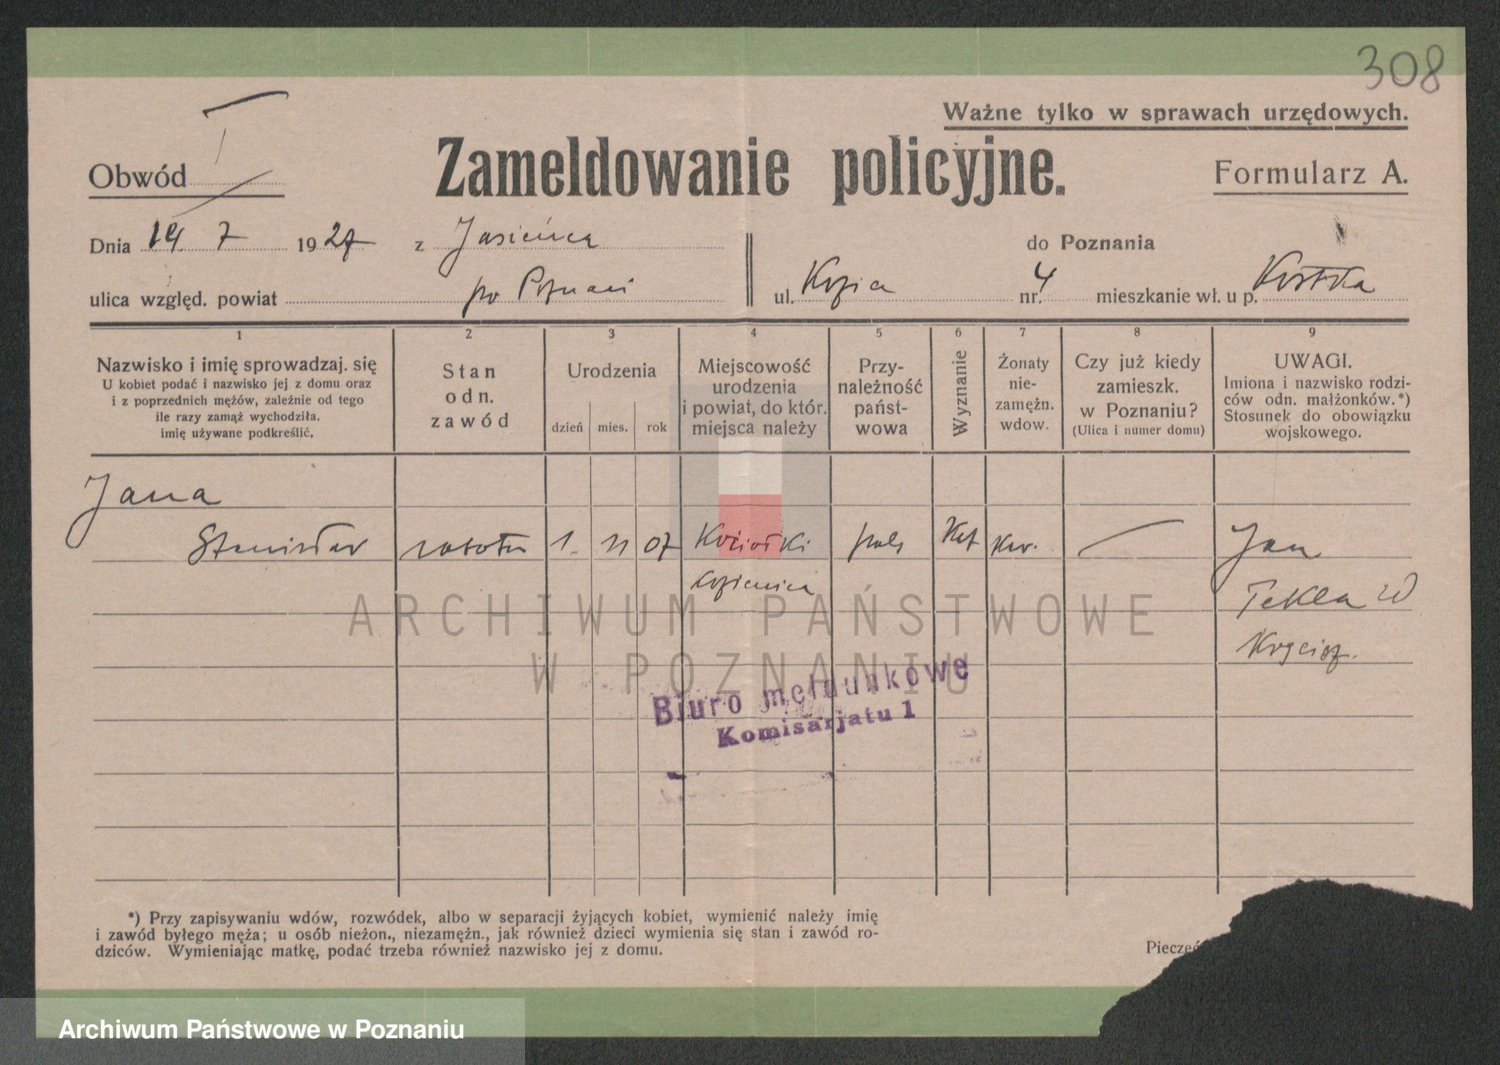 308
Ważne tylko w sprawach urzędowych.
I
Zameldowanie policyjne.
Obwód
Formularz A.
Dnia 14 7 1927 z Jasieńca
do Poznania
ulica względ. powiat
ul. Kozia nr. 4 mieszkanie wł. u p.
1 2 3 4 5 6 7 8 9
Nazwisko i imię sprowadzaj. się
U kobiet podać i nazwisko jej z domu oraz
i z poprzednich mężów, zależnie od tego
ile razy zamąż wychodziła.
imię używane podkreślić.
Stan
odn.
zawód
Urodzenia
dzień mies. rok
Miejscowość
urodzenia
i powiat, do któr.
miejsca należy
Przy-
należność
państ-
wowa
Wyznanie
Żonaty
nie-
zamężn.
wdow.
Czy już kiedy
zamieszk.
w Poznaniu?
(Ulica i numer domu)
UWAGI.
Imiona i nazwisko rodzi-
ców odn. małżonków.*)
Stosunek do obowiązku
wojskowego.
Jana
Stanisław robotn 1. 11 07 Kociołki pols Kat kw. Jan
Kozienice
Tekla
ARCHIWUM PAŃSTWOWE
W POZNANIU
Biuro meldunkowe
Komisarjatu 1
*) Przy zapisywaniu wdów, rozwódek, albo w separacji żyjących kobiet, wymienić należy imię
i zawód byłego męża; u osób nieżon., niezamężn., jak również dzieci wymienia się stan i zawód ro-
dziców. Wymieniając matkę, podać trzeba również nazwisko jej z domu.
Pieczęć
Archiwum Państwowe w Poznaniu